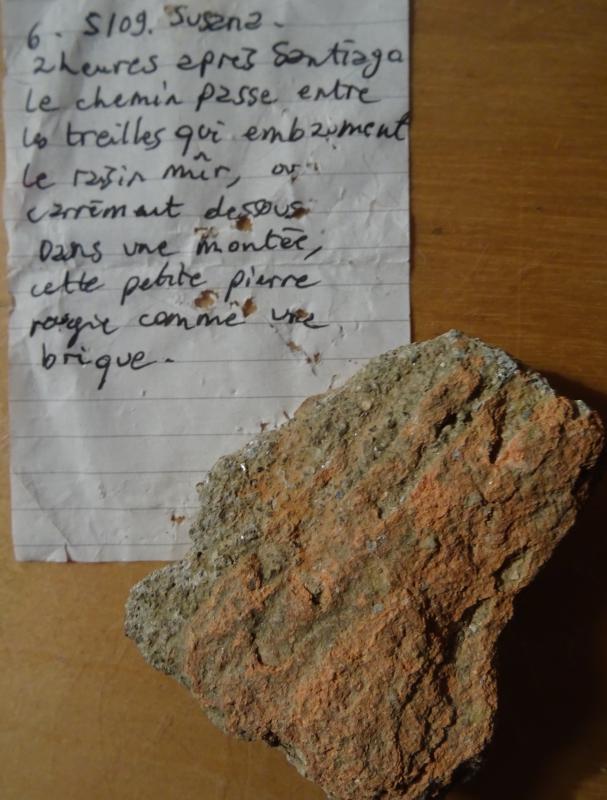 6. 5/09. Susana.
2 heures après Santiago
le chemin passe entre
les treilles qui embaument
le raisin mûr, ou
carrément dessous.
Dans une montée,
cette petite pierre
rougie comme une
brique.